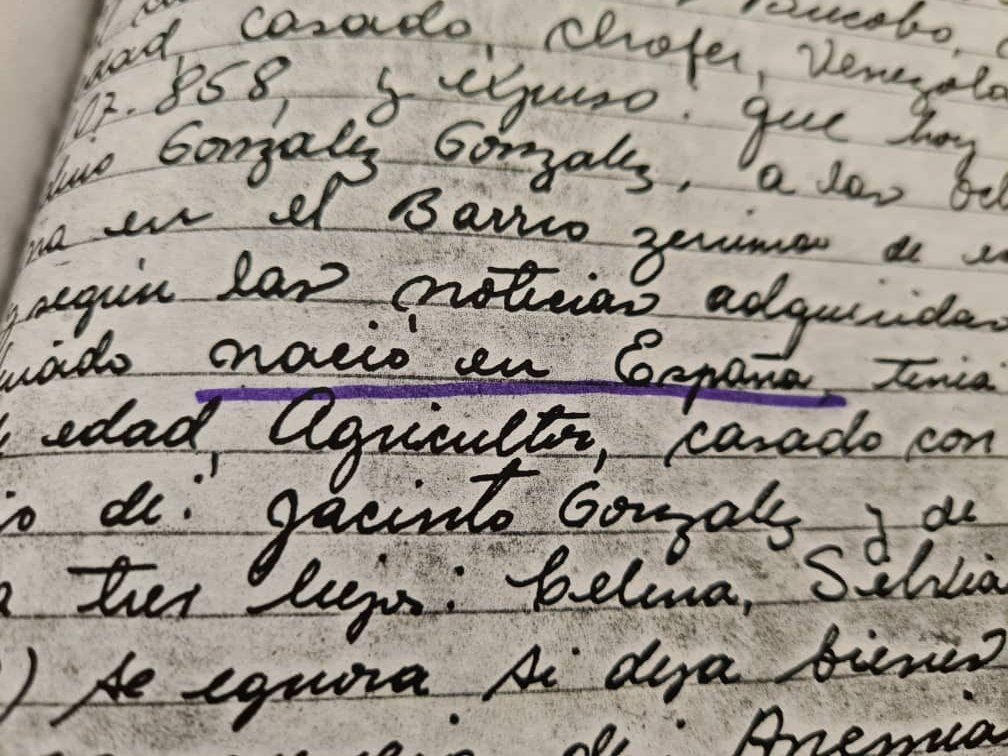 dad, casado, chofer, Venezola
07.858, y expuso: que hoy
González González, a las och
na en el Barrio de e
y según las noticias adquiridas
nació en España, tenia
edad, Agricultor, casado con
jo de: Jacinto González y de
a tres hijos: Celina, Silvia
) se ignora si deja bienes
Anemia